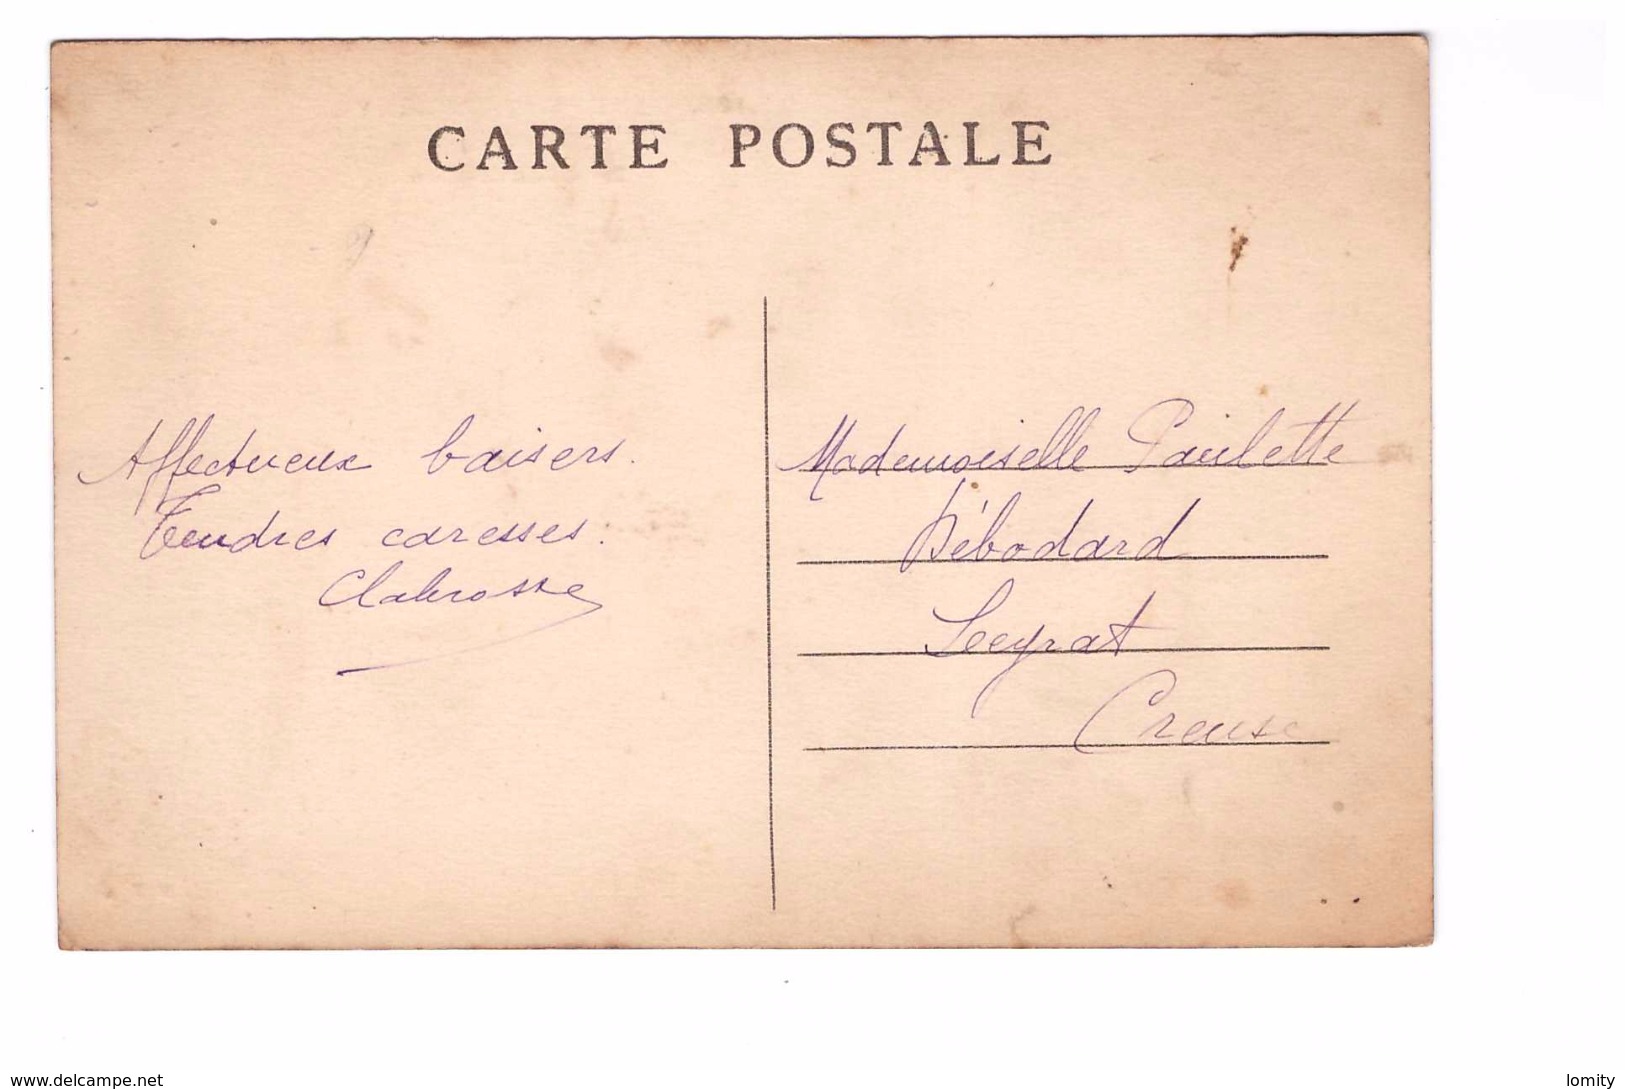 CARTE POSTALE
Affectueux baisers.
Tendres caresses.
Mademoiselle Paulette
Débodard
Creuse
www.delcampe.net
lomity